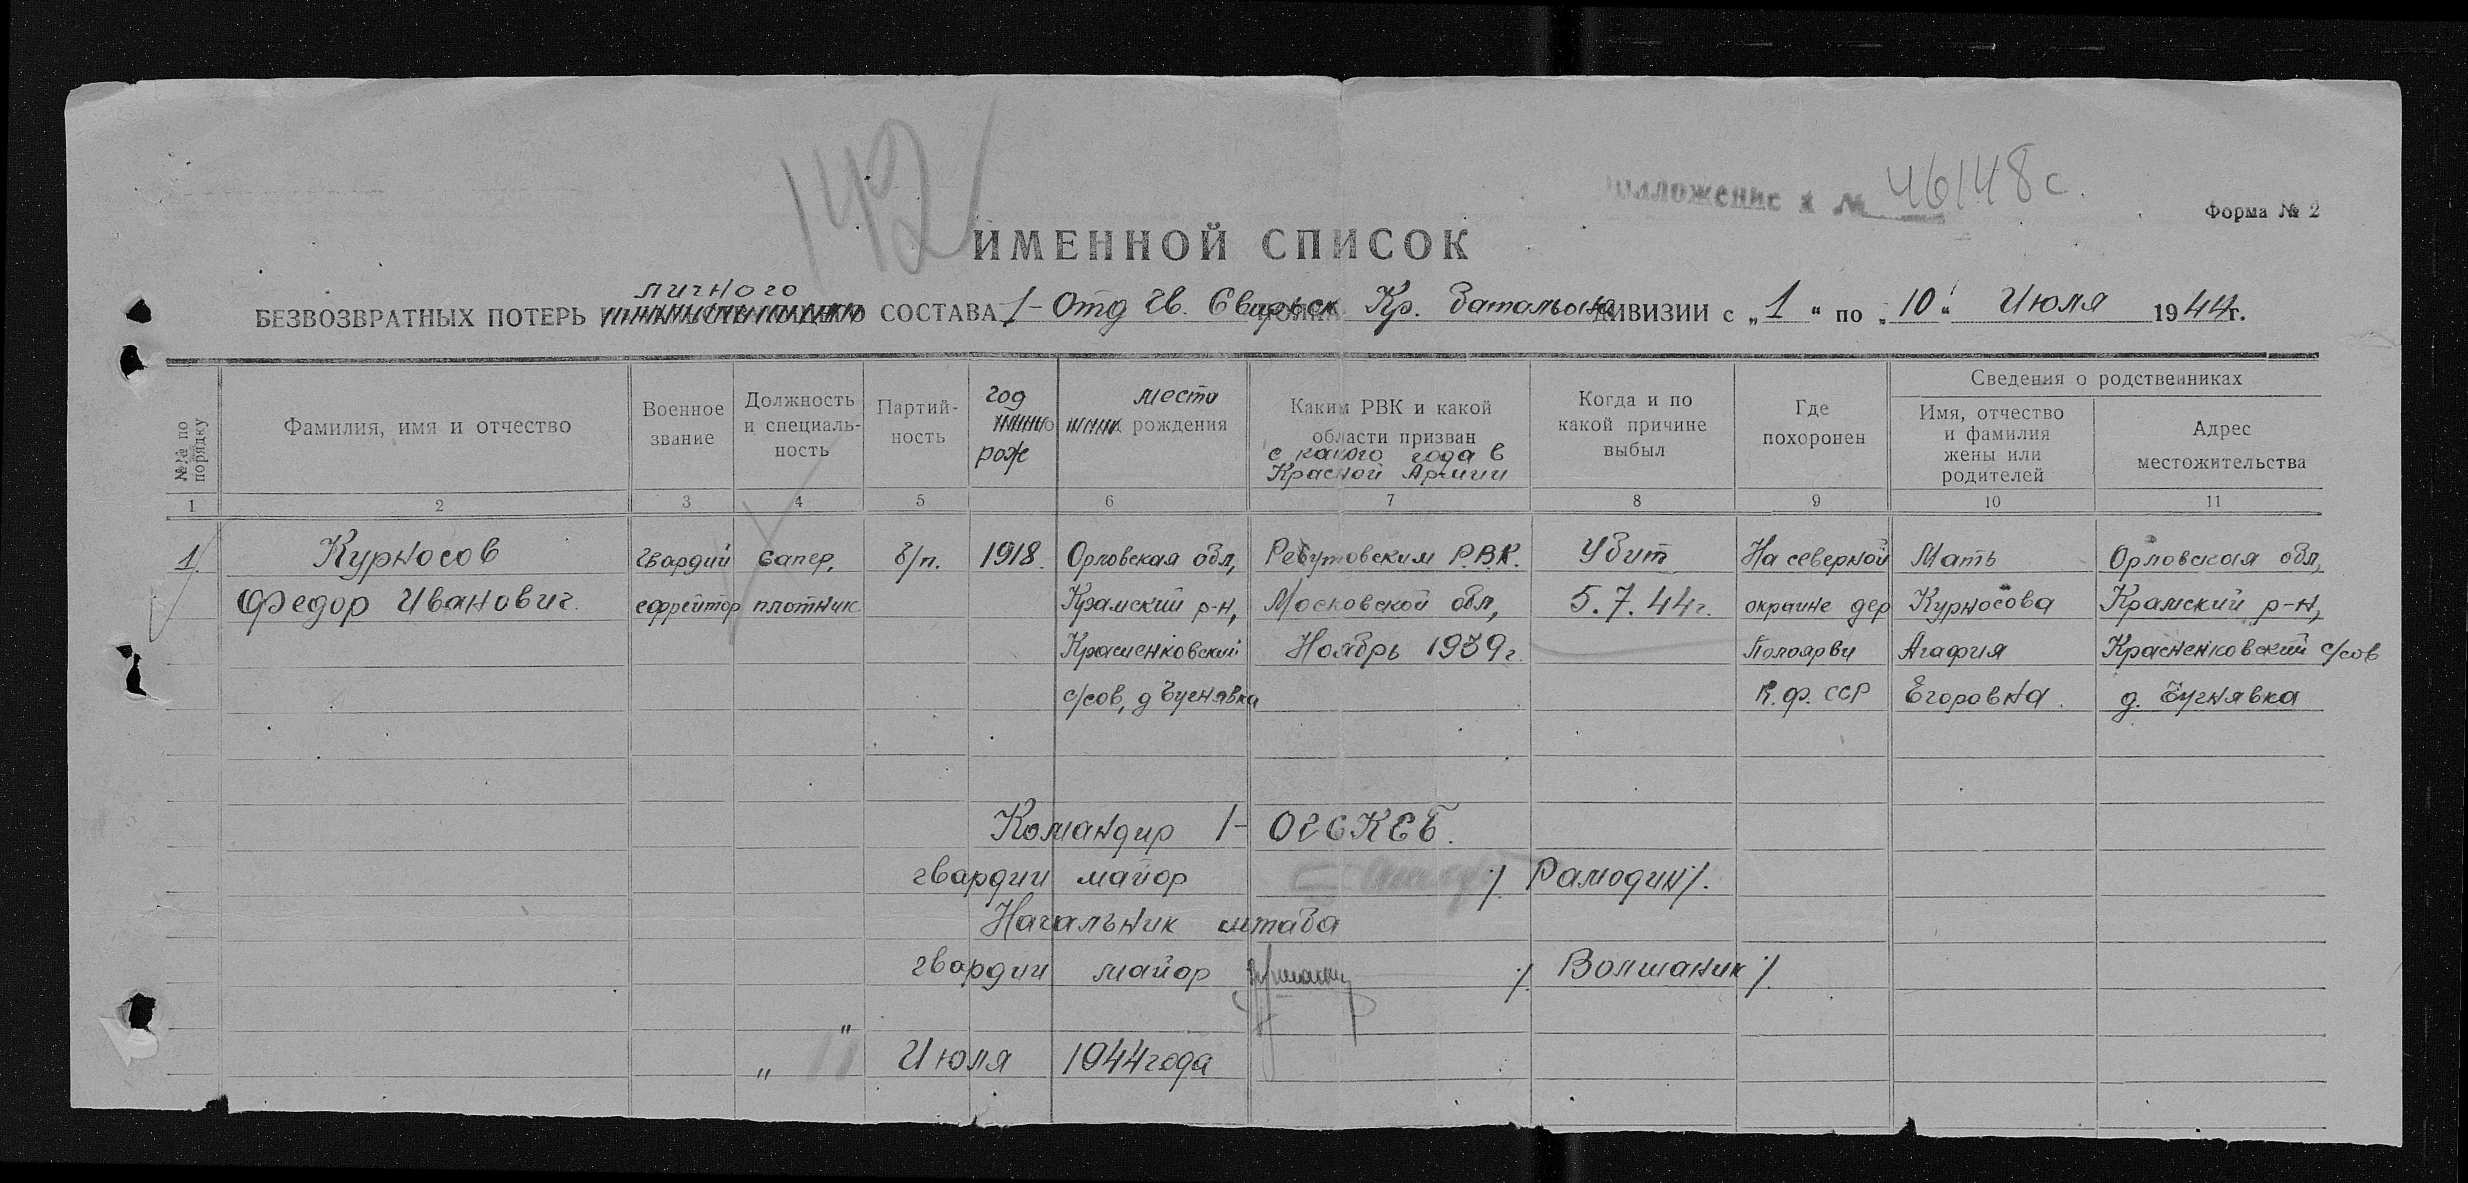 142
Приложение к № 46148с.
Форма № 2
ИМЕННОЙ СПИСОК
личного
БЕЗВОЗВРАТНЫХ ПОТЕРЬ СОСТАВА 1- Отд гв. Свирьск Кр. Батальона ДИВИЗИИ с „1" по „10" Июля 1944г.
№№ по порядку
Фамилия, имя и отчество
Военное звание
Должность и специальность
Партийность
год рож
места рождения
Каким РВК и какой области призван с какого года в Красной Армии
Когда и по какой причине выбыл
Где похоронен
Сведения о родственниках
Имя, отчество и фамилия жены или родителей
Адрес местожительства
1 2 3 4 5 6 7 8 9 10 11
1. Курносов гвардии сапер, б/п. 1918. Орловская обл, Реутовским Р.В.К. Убит На северной Мать Орловская обл,
Федор Иванович. ефрейтор плотник Крамский р-н, Московской обл, 5.7.44г. окраине дер Курносова Крамский р-н,
Красненковский Ноябрь 1939г. Полоярви Агафия Красненковский с/сов
с/сов, д Бугнявка К.ф. ССР Егоровна. д. Бугнявка
Командир 1- ОГСКСБ.
гвардии майор /. Рамодин/.
Начальник штаба
гвардии майор /. Волшаник/.
„ " Июля 1944года